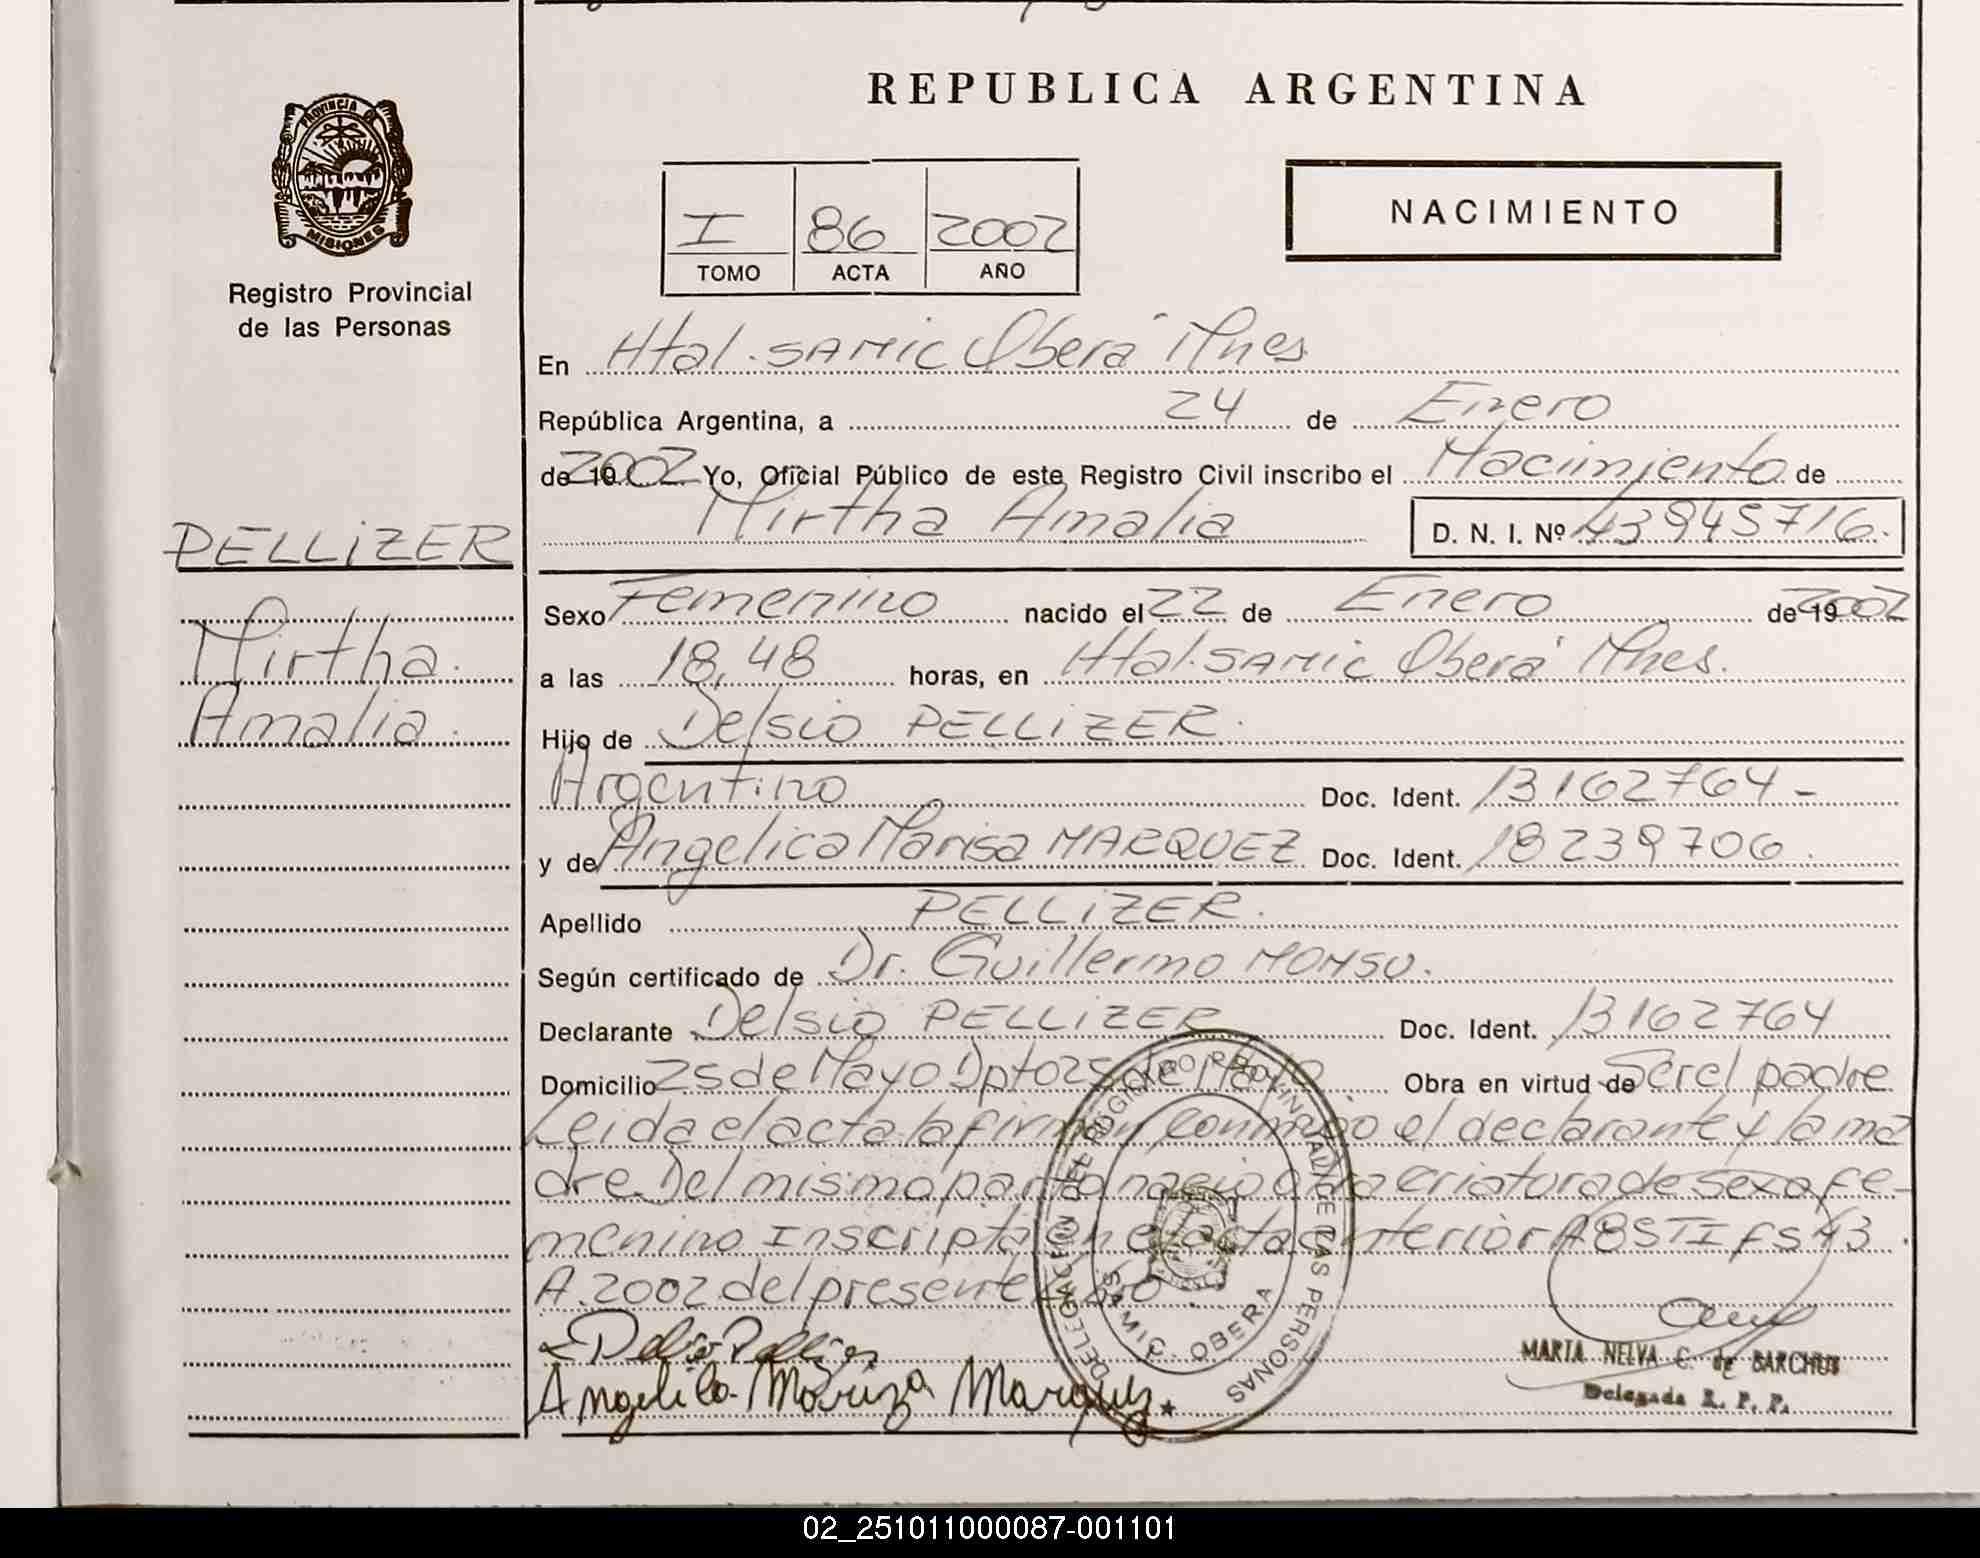 REPUBLICA ARGENTINA
PROVINCIA DE
MISIONES
Registro Provincial
de las Personas
I 86 2002
TOMO ACTA AÑO
NACIMIENTO
En Htal. SAMIC Oberá Mnes
República Argentina, a 24 de Enero
de 19 2002 Yo, Oficial Público de este Registro Civil inscribo el Nacimiento de
Mirtha Amalia D. N. I. Nº 43945716.
PELLIZER
Mirtha
Amalia
Sexo Femenino nacido el 22 de Enero de 19 2002
a las 18,48 horas, en Htal. SAMIC Oberá Mnes.
Hijo de Delsio PELLIZER.
Argentino Doc. Ident. 13162764-
y de Angelica Marisa MARQUEZ Doc. Ident. 18239706.
Apellido PELLIZER.
Según certificado de Dr. Guillermo MONSU.
Declarante Delsio PELLIZER Doc. Ident. 13162764
Domicilio 25 de Mayo Dpto 25 de Mayo Obra en virtud de Ser el padre
Leida el acta la firman conmigo el declarante y la ma
dre. Del mismo parto nacio otra criatura de sexo fe-
menino Inscripta en el acta anterior A 85 TI fs 43.
A. 2002 del presente
Angelica Mariza Marquez
DELEGACION DEL REGISTRO PROVINCIAL DE LAS PERSONAS
SAMIC. OBERA
MARTA NELVA C. de BARCHUS
Delegada R. P. P.
02_251011000087-001101